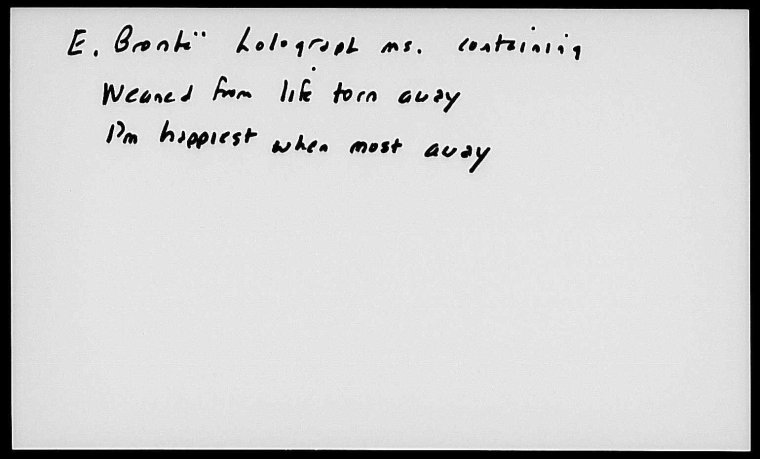 E. Brontë holograph ms. containing
Weaned from life torn away
I'm happiest when most away